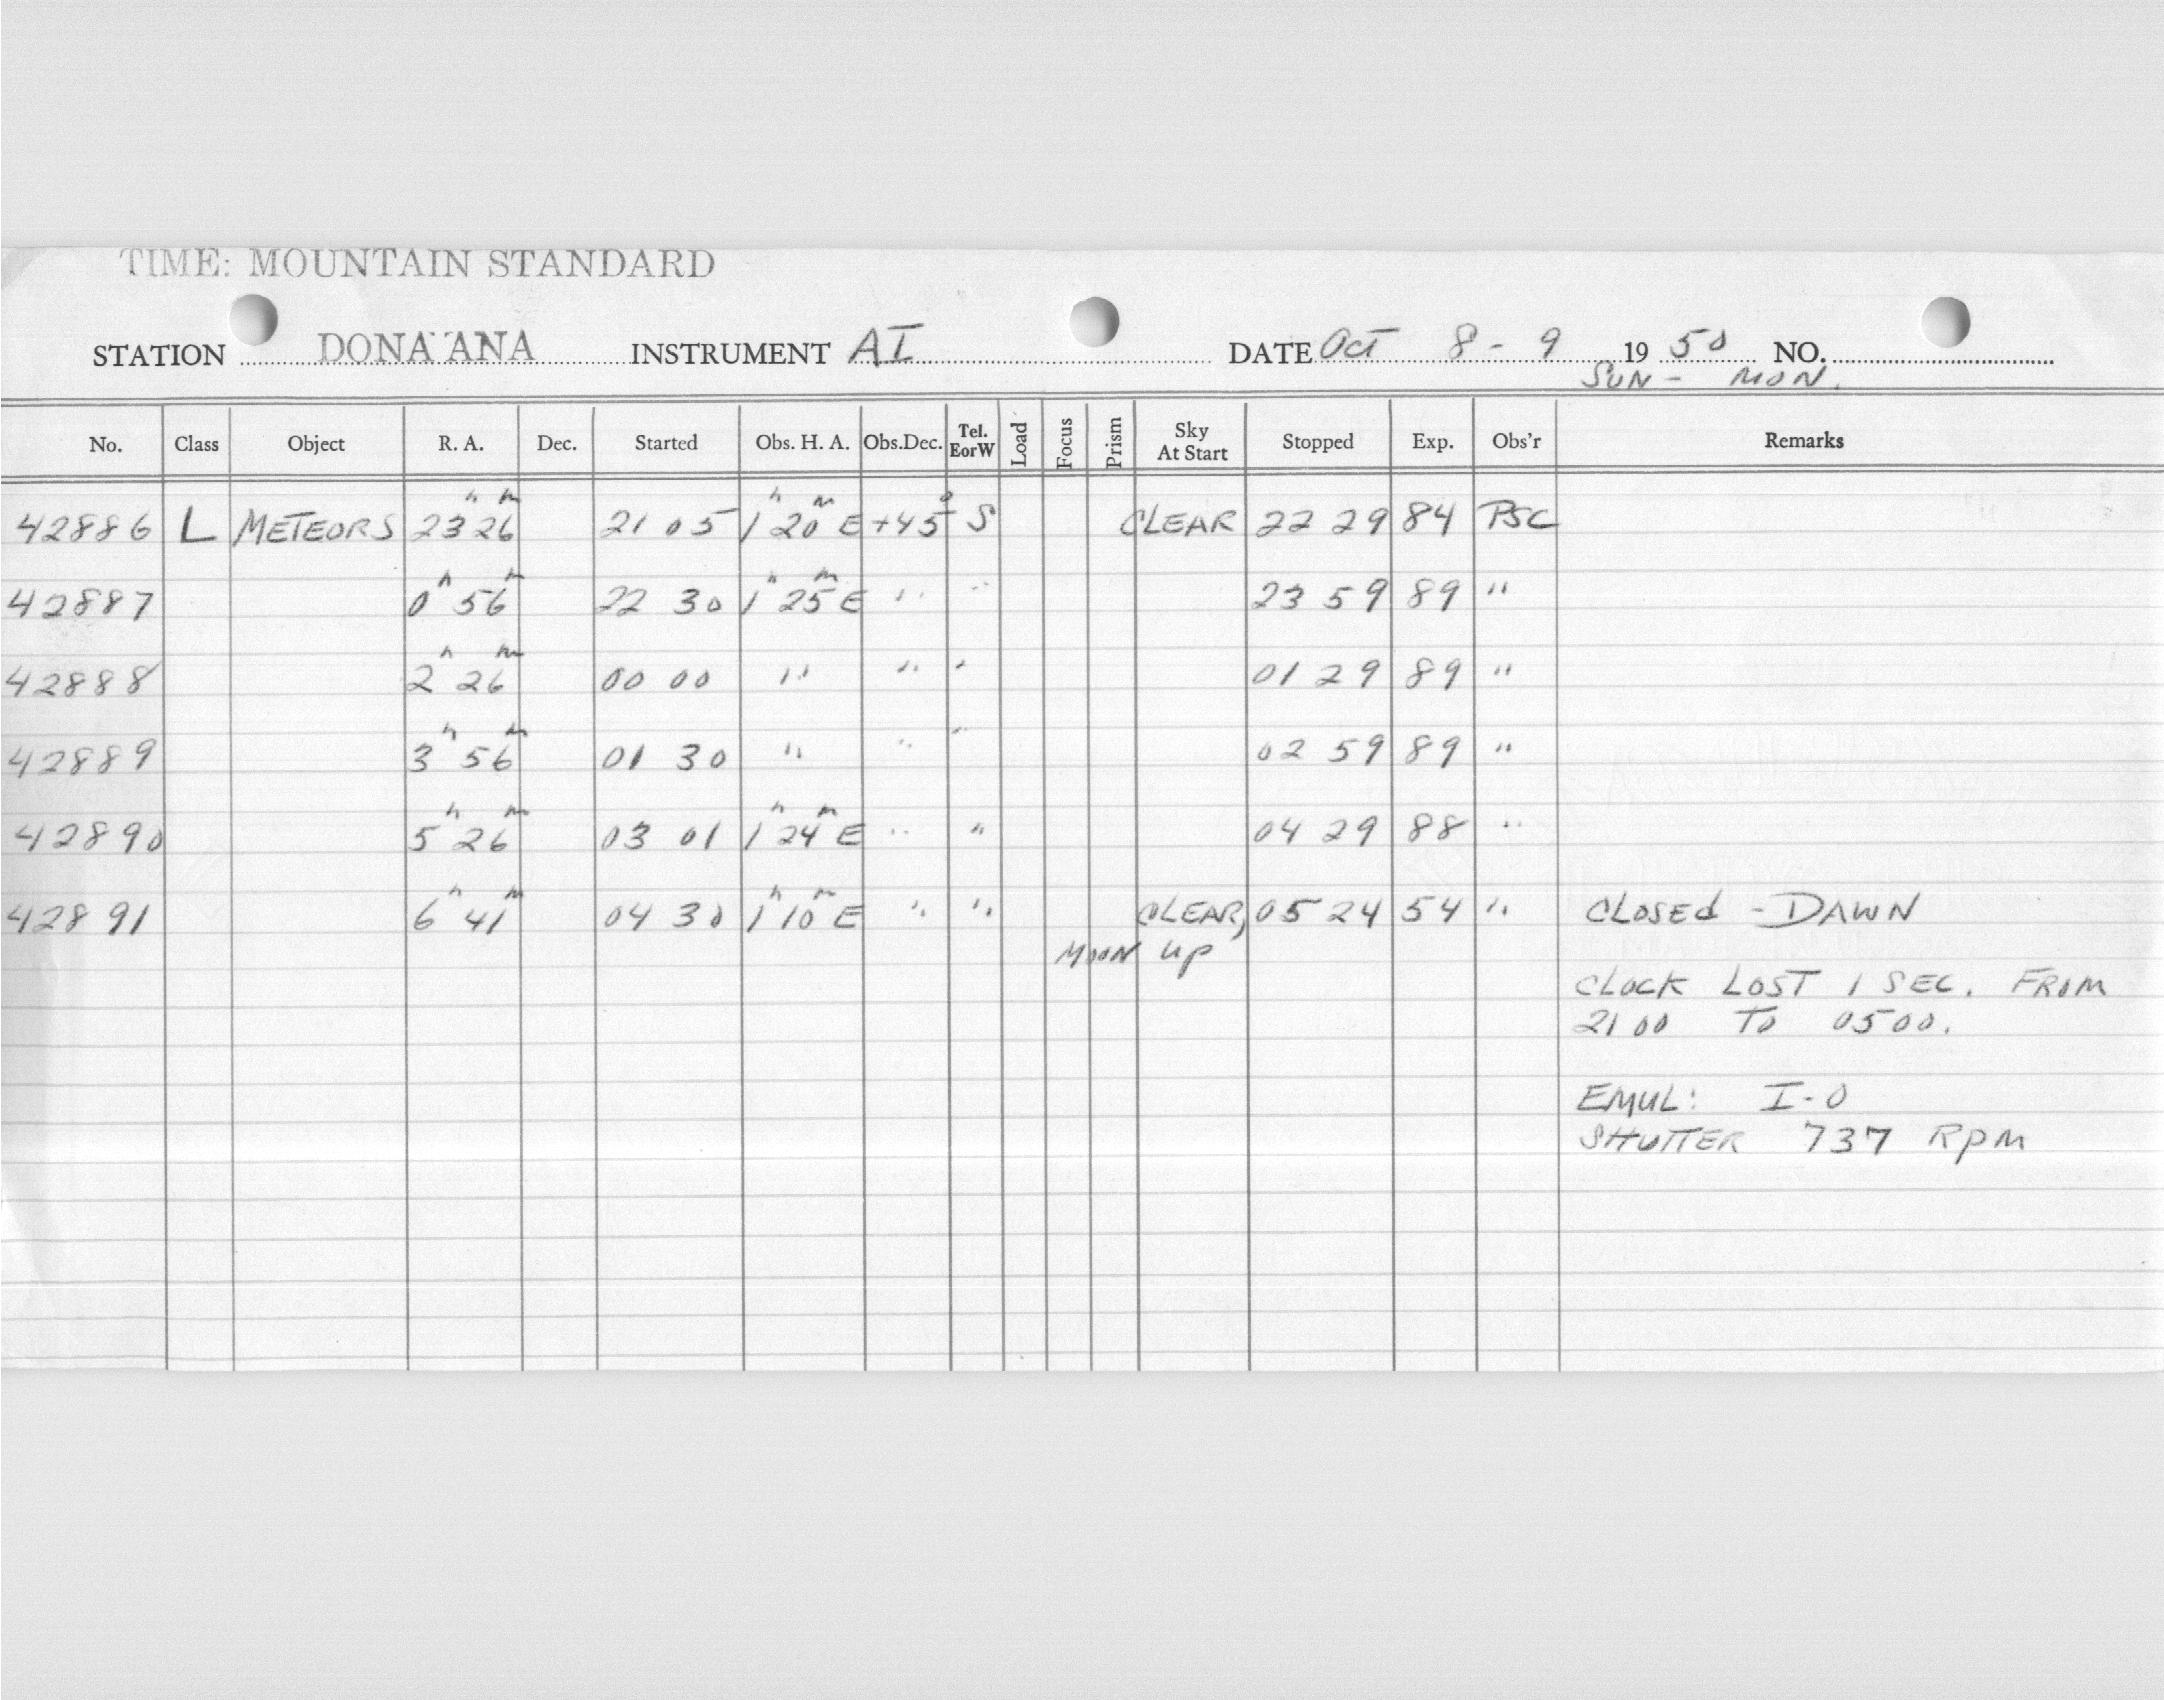 TIME: MOUNTAIN STANDARD
STATION DONA ANA INSTRUMENT AI DATE Oct 8 - 9 19 50 NO.
SUN - MON.
No. Class Object R. A. Dec. Started Obs. H. A. Obs.Dec. Tel. EorW Load Focus Prism Sky At Start Stopped Exp. Obs'r Remarks
42886 L METEORS 23h 26m 21 05 1h 20m E +45° S CLEAR 22 29 84 PSC
42887 0h 56m 22 30 1h 25m E " " 23 59 89 "
42888 2h 26m 00 00 " " " 01 29 89 "
42889 3h 56m 01 30 " " " 02 59 89 "
42890 5h 26m 03 01 1h 24m E " " 04 29 88 "
42891 6h 41m 04 30 1h 10m E " " CLEAR, 05 24 54 " CLOSEd - DAWN
MOON Up
CLOCK LOST 1 SEC. FROM
2100 TO 0500.
EMUL: I-O
SHUTTER 737 RPM